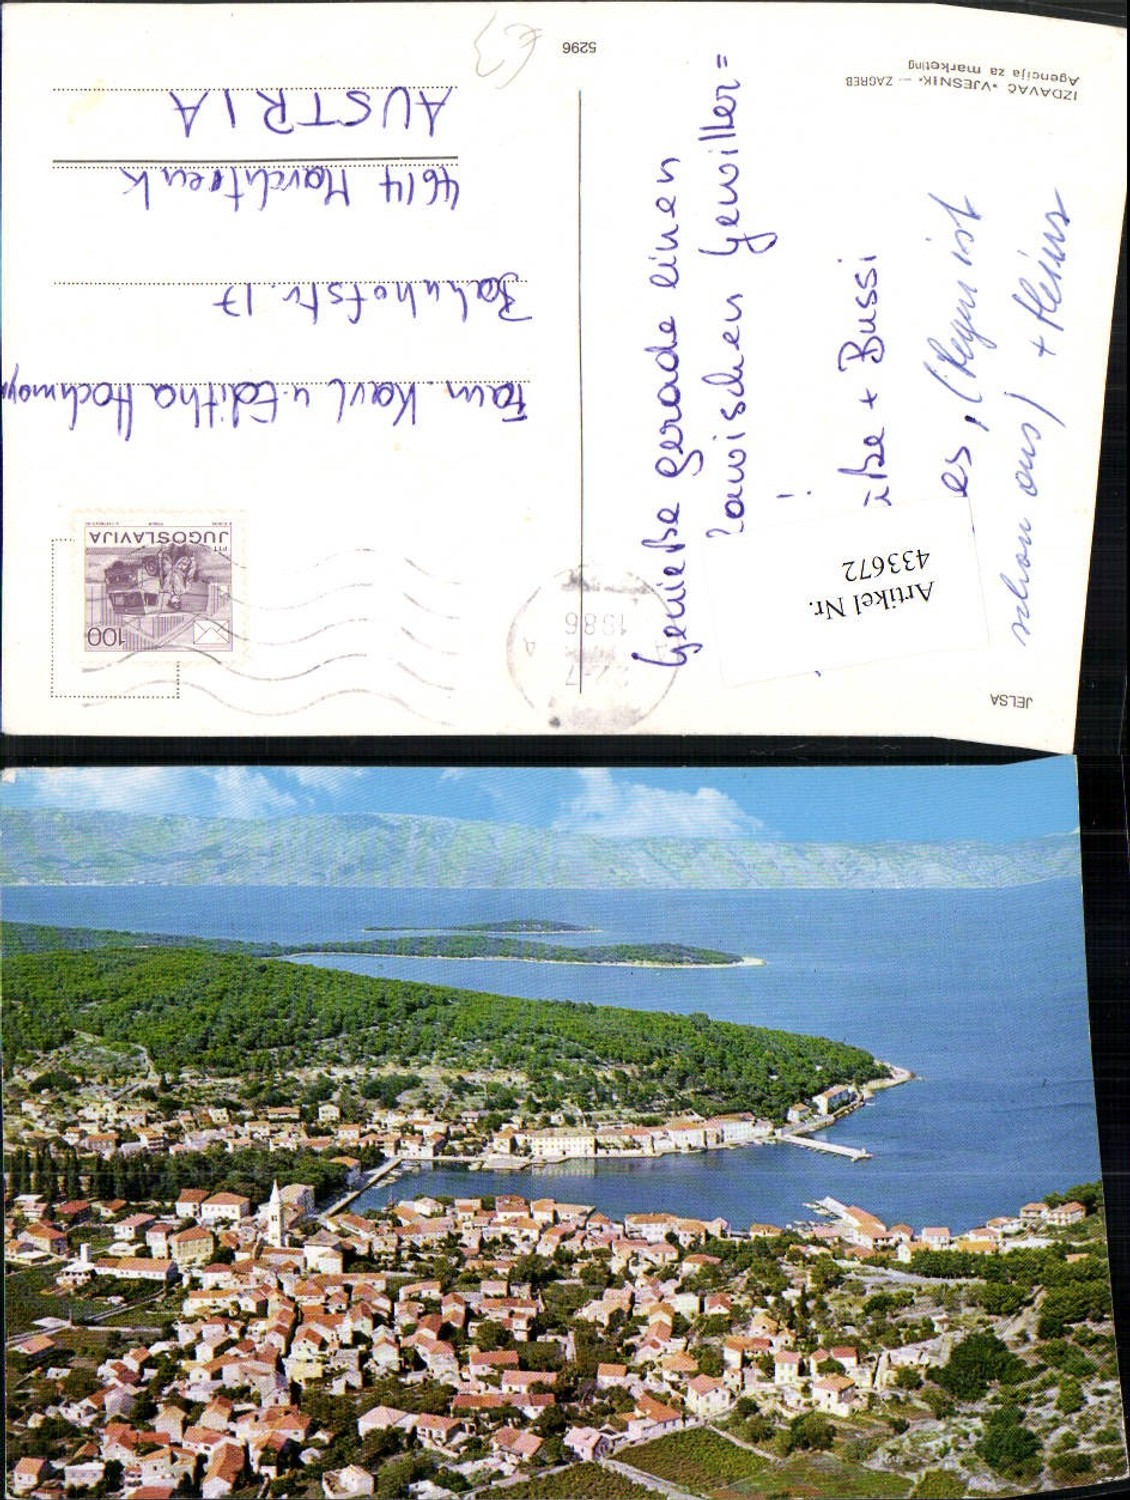 JELSA
Genieße gerade einen
zwischen Gewitter=
!
es, (Regen ist
schon aus) + Heinz
Artikel Nr.
433672
IZDAVAČ «VJESNIK» — ZAGREB
Agencija za marketing
5296
PTT
JUGOSLAVIJA
100
1986
Fam. Karl u. Editha
Bahnhofstr. 17
4614 Marchtrenk
AUSTRIA